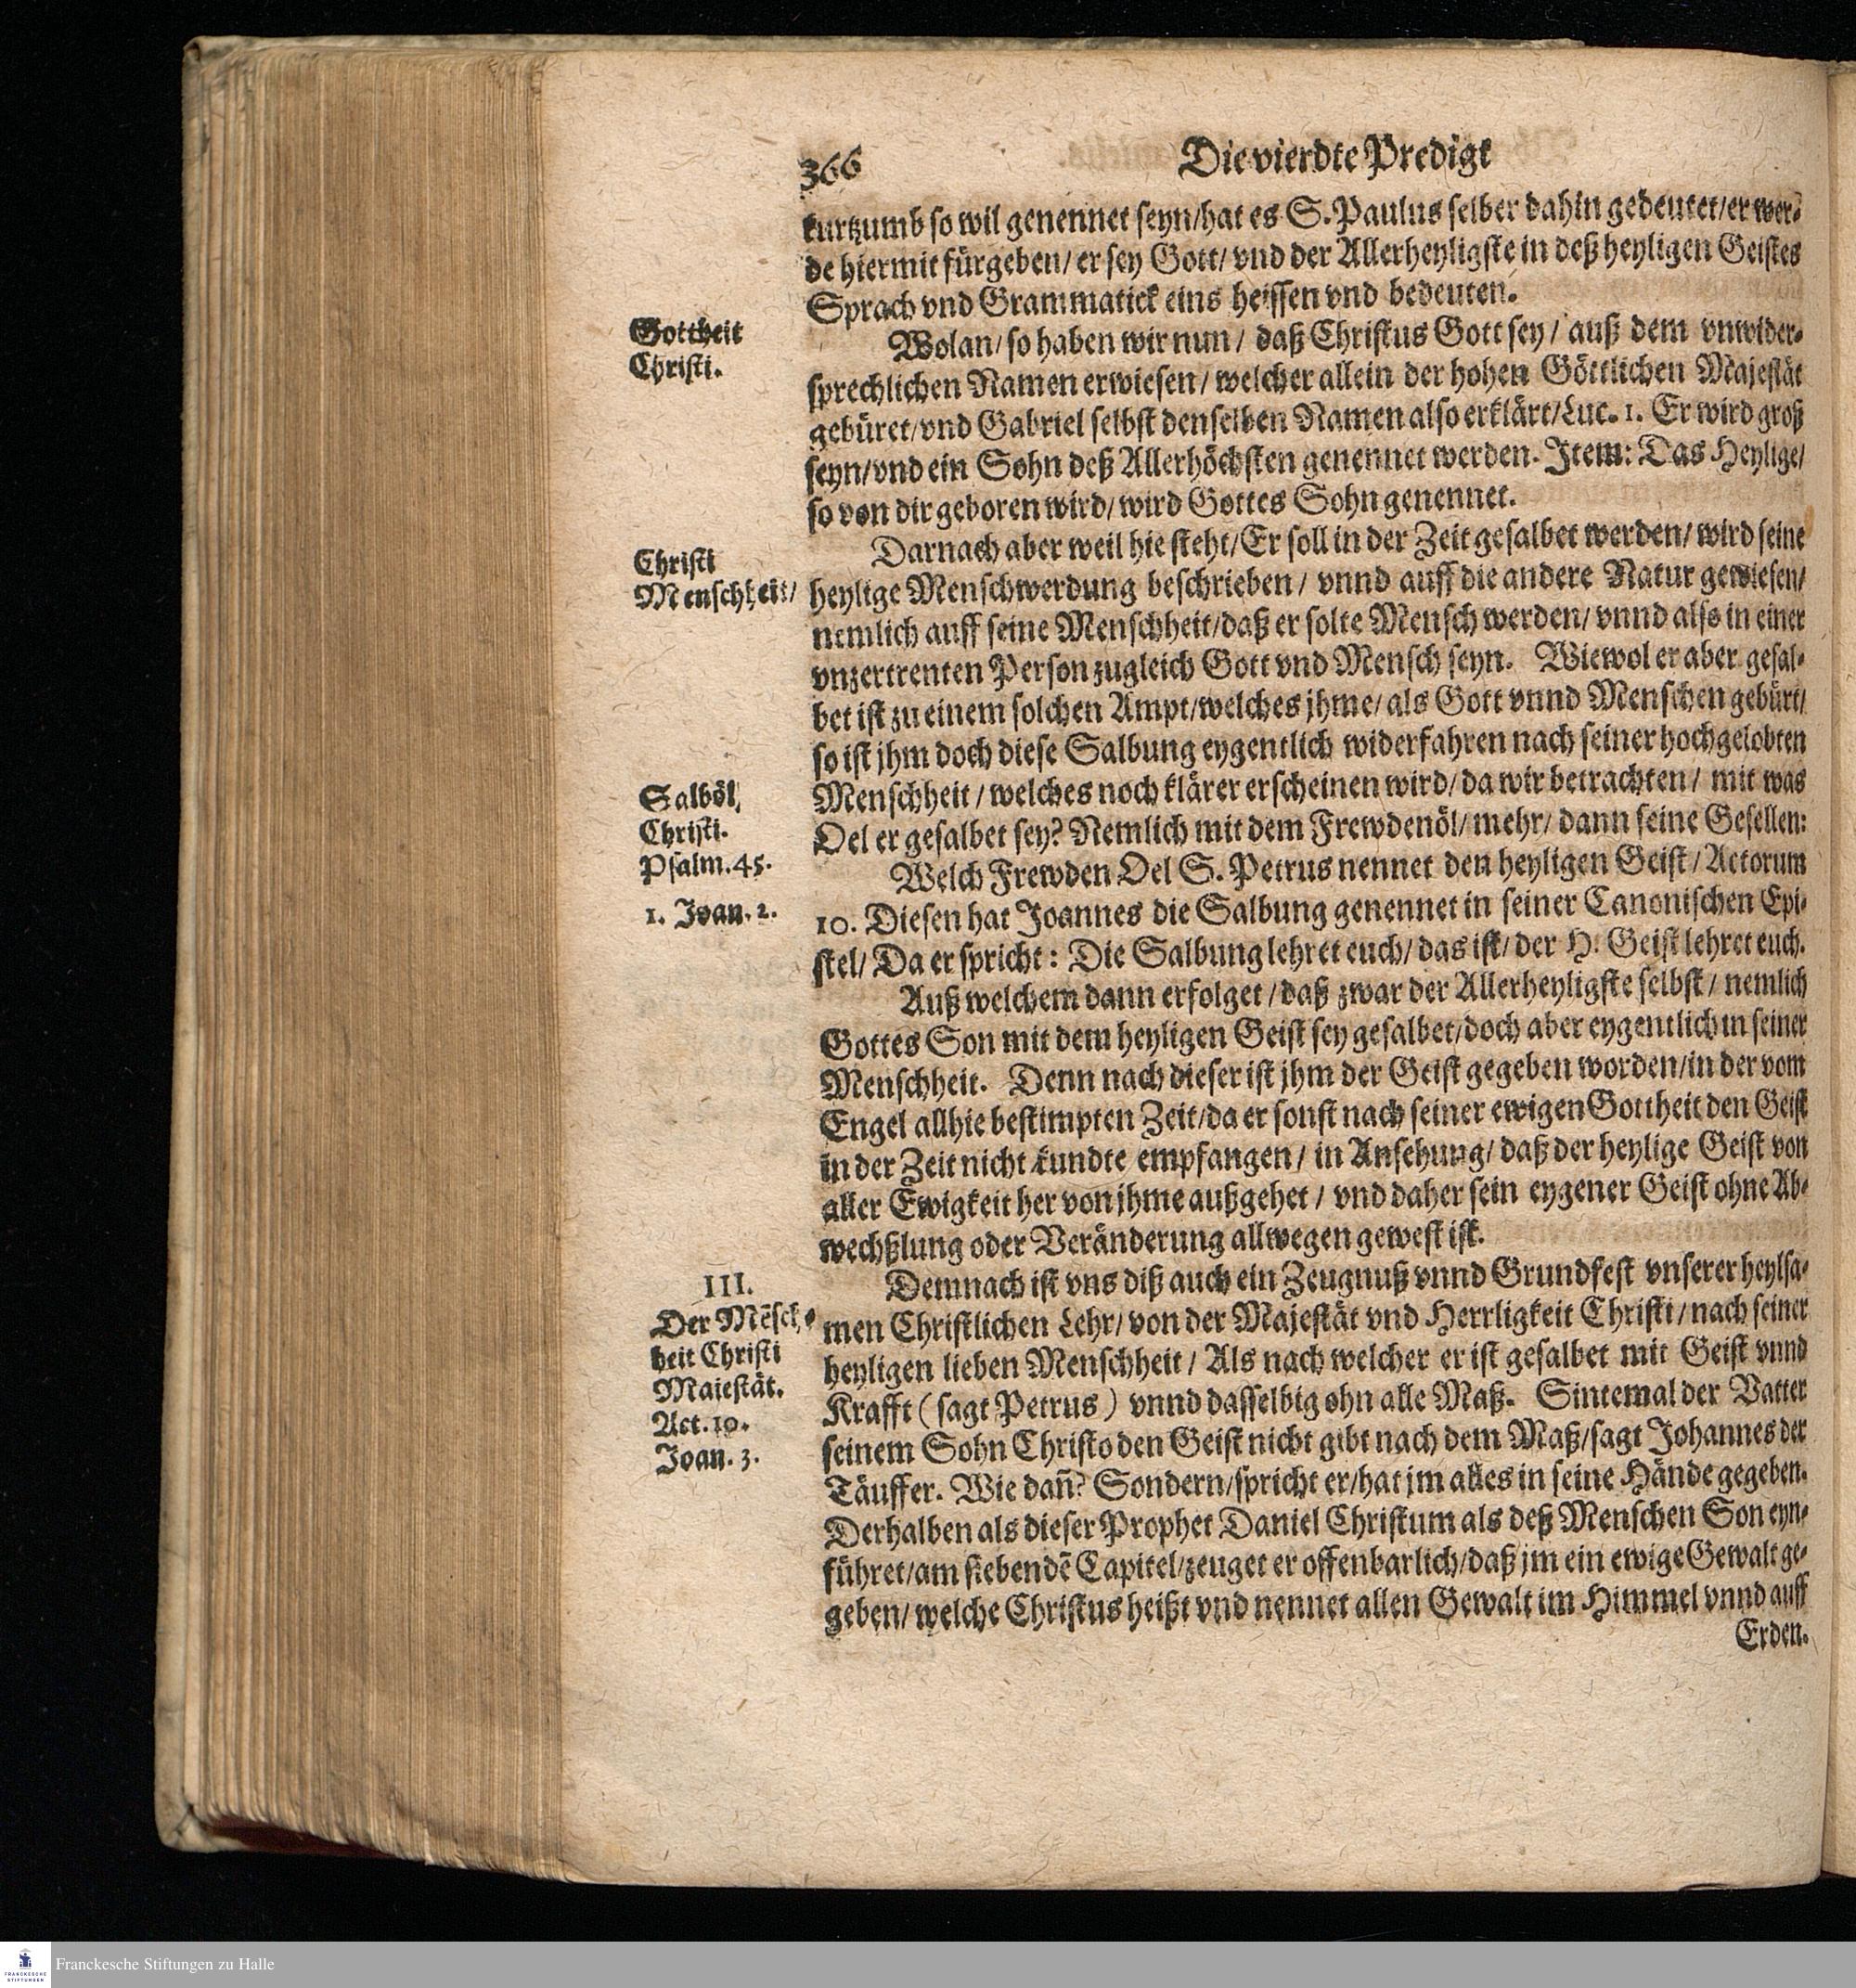 366
Die vierdte Predigt
kurtzumb so wil genennet seyn/hat es S. Paulus selber dahin gedeutet/er wer-
de hiermit fürgeben/ er sey Gott/ vnd der Allerheyligste in deß heyligen Geistes
Sprach vnd Grammatick eins heissen vnd bedeuten.
Gottheit
Christi.
Wolan/ so haben wir nun / daß Christus Gott sey / auß dem vnwider-
sprechlichen Namen erwiesen/ welcher allein der hohen Göttlichen Majestät
gebüret/vnd Gabriel selbst denselben Namen also erklärt/Luc. 1. Er wird groß
seyn/vnd ein Sohn deß Allerhöchsten genennet werden. Item: Das Heylige/
so von dir geboren wird/ wird Gottes Sohn genennet.
Christi
Menschheit/
Darnach aber weil hie steht/Er soll in der Zeit gesalbet werden/ wird seine
heylige Menschwerdung beschrieben / vnnd auff die andere Natur gewiesen/
nemlich auff seine Menschheit/daß er solte Mensch werden/ vnnd also in einer
vnzertrenten Person zugleich Gott vnd Mensch seyn. Wiewol er aber gesal-
bet ist zu einem solchen Ampt/welches jhme/ als Gott vnnd Menschen gebürt/
so ist jhm doch diese Salbung eygentlich widerfahren nach seiner hochgelobten
Menschheit / welches noch klärer erscheinen wird/ da wir betrachten/ mit was
Oel er gesalbet sey? Nemlich mit dem Frewdenöl/ mehr/ dann seine Gesellen:
Salböl
Christi.
Psalm. 45.
1. Joan. 2.
Welch Frewden Oel S. Petrus nennet den heyligen Geist / Actorum
10. Diesen hat Joannes die Salbung genennet in seiner Canonischen Epi-
stel/ Da er spricht: Die Salbung lehret euch/ das ist/ der H. Geist lehret euch.
Auß welchem dann erfolget / daß zwar der Allerheyligste selbst / nemlich
Gottes Son mit dem heyligen Geist sey gesalbet/doch aber eygentlich in seiner
Menschheit. Denn nach dieser ist jhm der Geist gegeben worden/in der vom
Engel allhie bestimpten Zeit/da er sonst nach seiner ewigen Gottheit den Geist
in der Zeit nicht kundte empfangen / in Ansehung/ daß der heylige Geist von
aller Ewigkeit her von jhme außgehet / vnd daher sein eygener Geist ohne Ab-
wechßlung oder Veränderung allwegen gewest ist.
III.
Der Mẽsch-
heit Christi
Maiestät.
Act. 10.
Joan. 3.
Demnach ist vns diß auch ein Zeugnuß vnnd Grundfest vnserer heylsa-
men Christlichen Lehr/ von der Majestät vnd Herrligkeit Christi / nach seiner
heyligen lieben Menschheit / Als nach welcher er ist gesalbet mit Geist vnnd
Krafft ( sagt Petrus ) vnnd dasselbig ohn alle Maß. Sintemal der Vatter
seinem Sohn Christo den Geist nicht gibt nach dem Maß/sagt Johannes der
Täuffer. Wie dañ? Sondern/spricht er/hat jm alles in seine Hände gegeben.
Derhalben als dieser Prophet Daniel Christum als deß Menschen Son eyn-
führet/am siebendẽ Capitel/zeuget er offenbarlich/daß jm ein ewige Gewalt ge-
geben/ welche Christus heißt vnd nennet allen Gewalt im Himmel vnnd auff
Erden.
FRANCKESCHE
STIFTUNGEN
Franckesche Stiftungen zu Halle